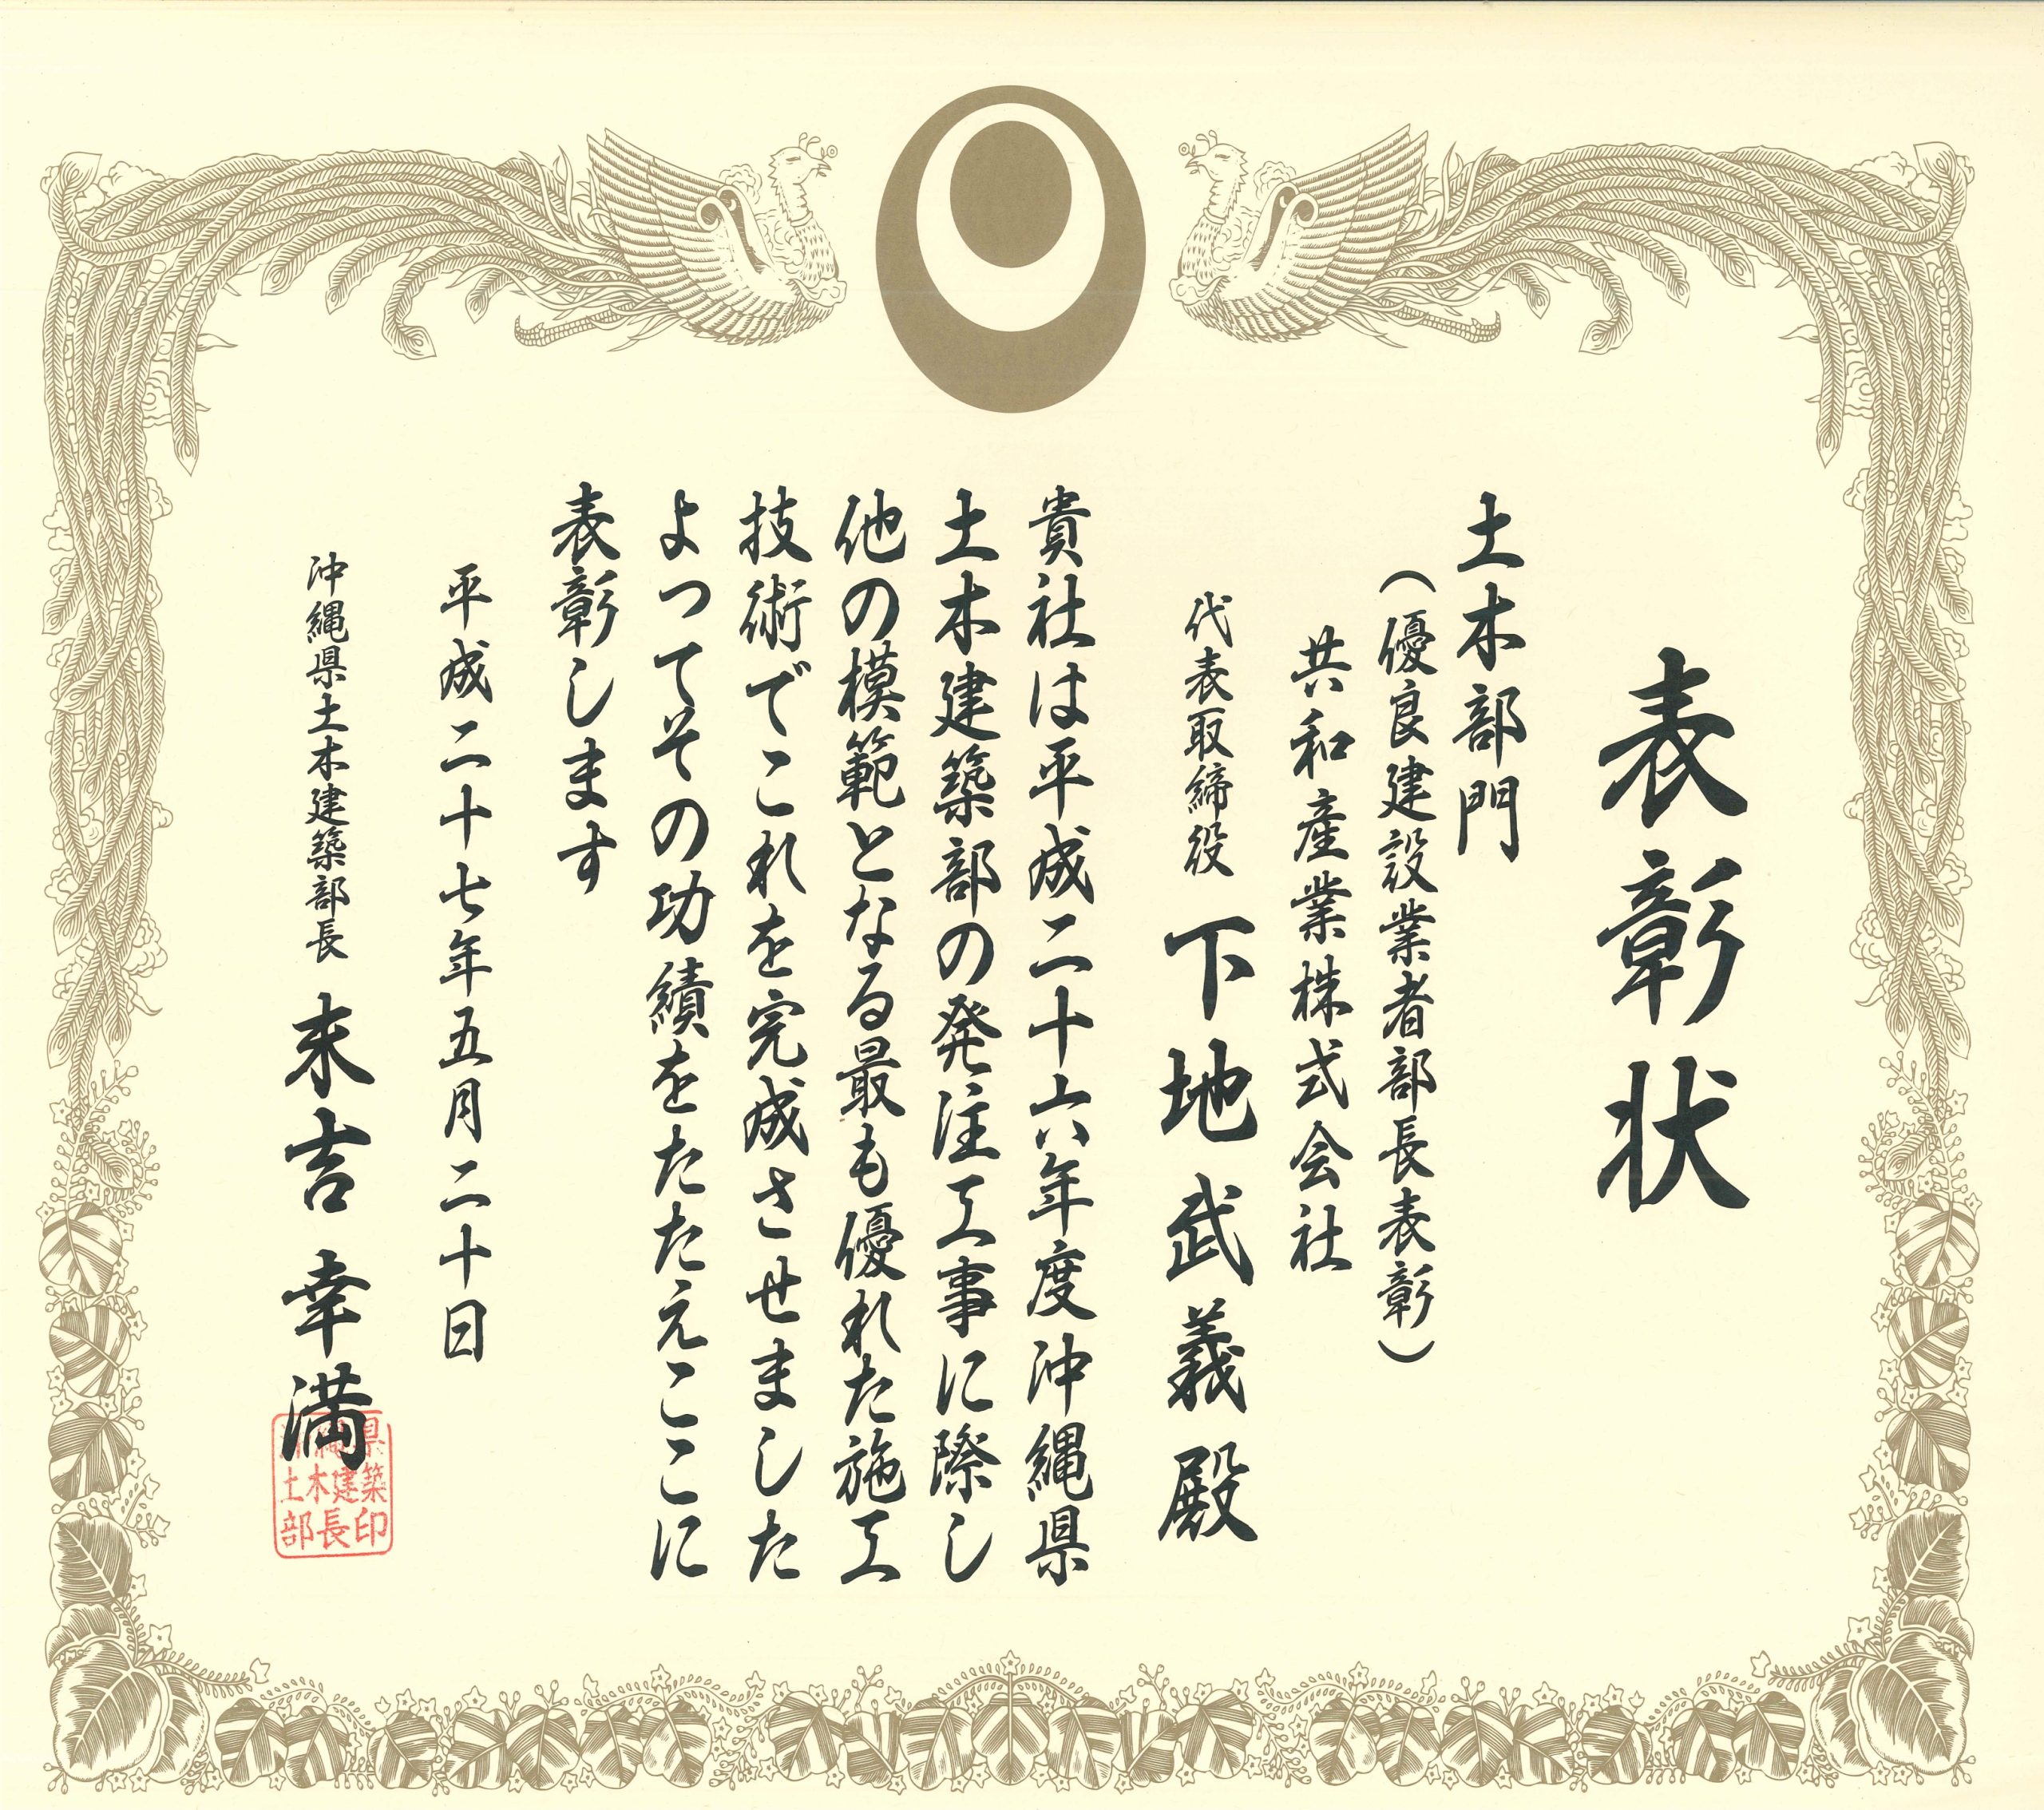 表彰状
土木部門
（優良建設業者部長表彰）
共和産業株式会社
代表取締役 下地武義殿
貴社は平成二十六年度沖縄県
土木建築部の発注工事に際し
他の模範となる最も優れた施工
技術でこれを完成させました
よってその功績をたたえここに
表彰します
平成二十七年五月二十日
沖縄県土木建築部長 末吉幸満
沖縄県
土木建築
部長印